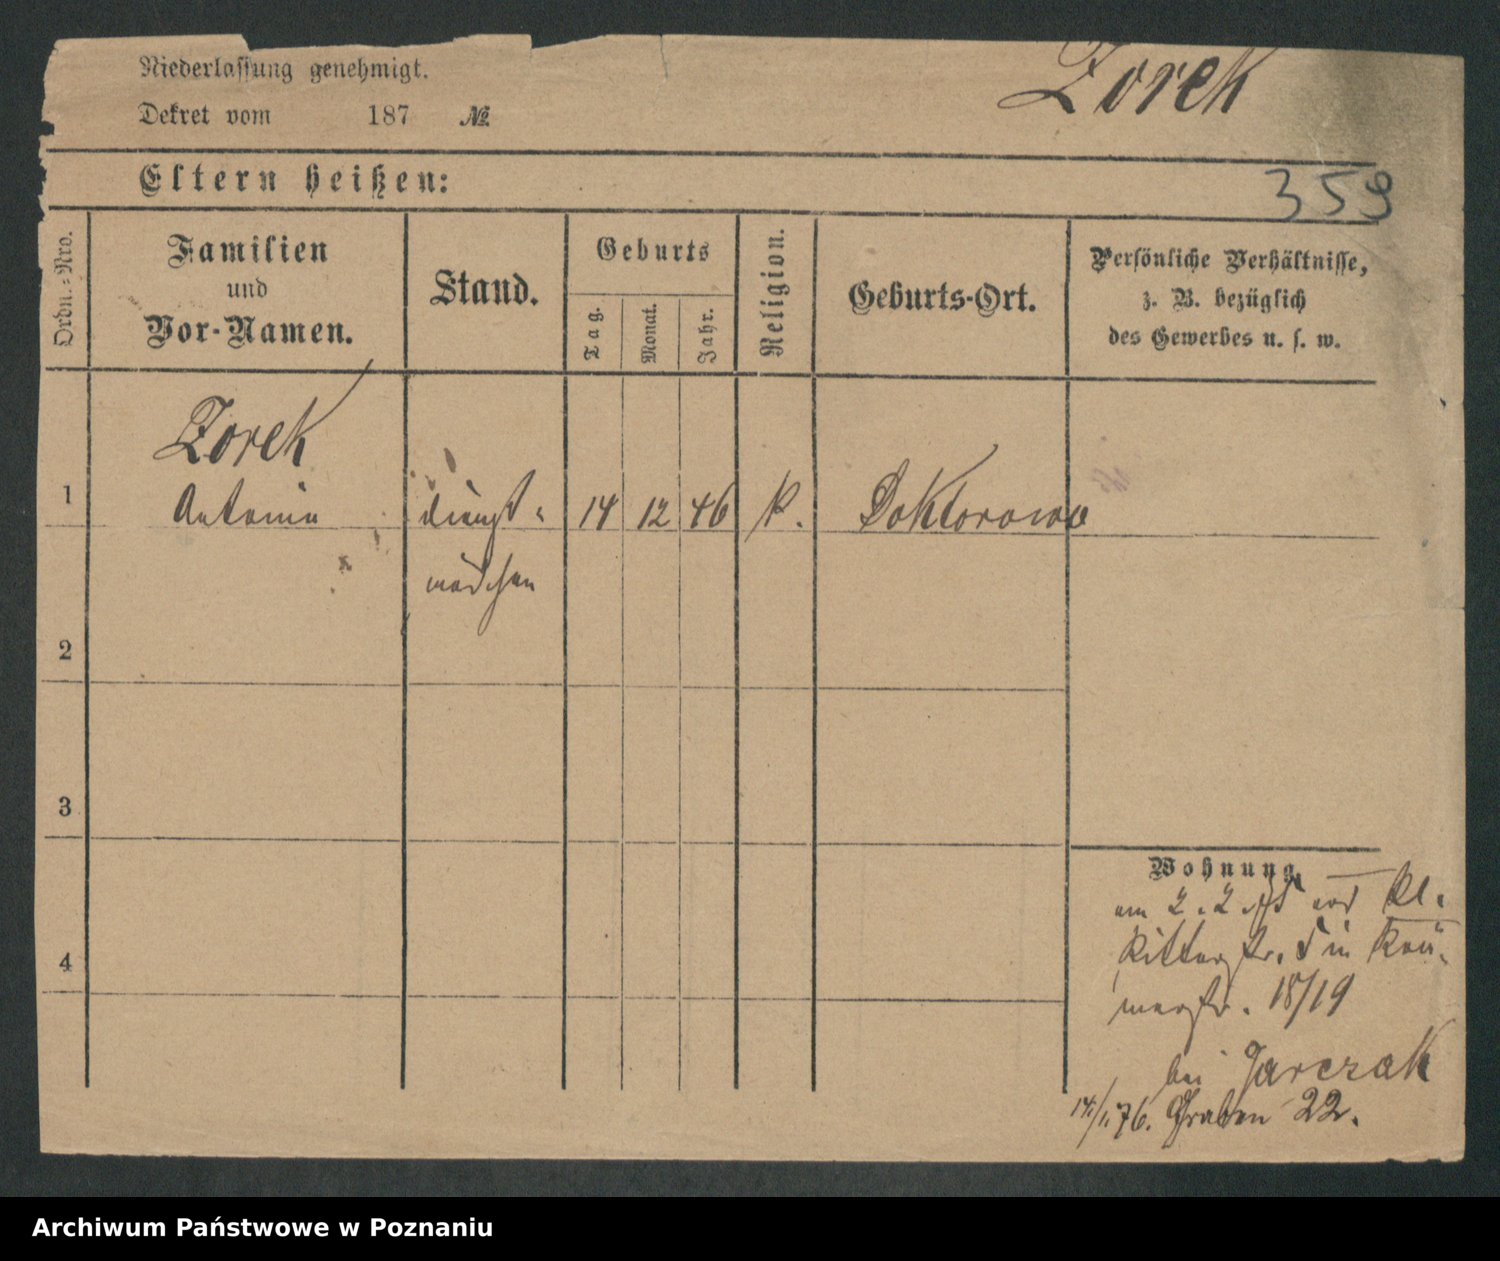 Niederlassung genehmigt.
Zorek
Dekret vom 187 №
Eltern heißen:
359
Ordn.-Nro.
Familien
und
Vor-Namen.
Stand.
Geburts
Tag.
Monat.
Jahr.
Religion.
Geburts-Ort.
Persönliche Verhältnisse,
z. B. bezüglich
des Gewerbes u. s. w.
Zorek
1 Antonia dienst- 14 12 46 K. Doktorowo
mädchen
2
3
Wohnung.
am 2. 2. von Kl.
4
Ritterstr. 5 in
18/19
bei Jarczak
14/1. 76. Graben 22.
Archiwum Państwowe w Poznaniu